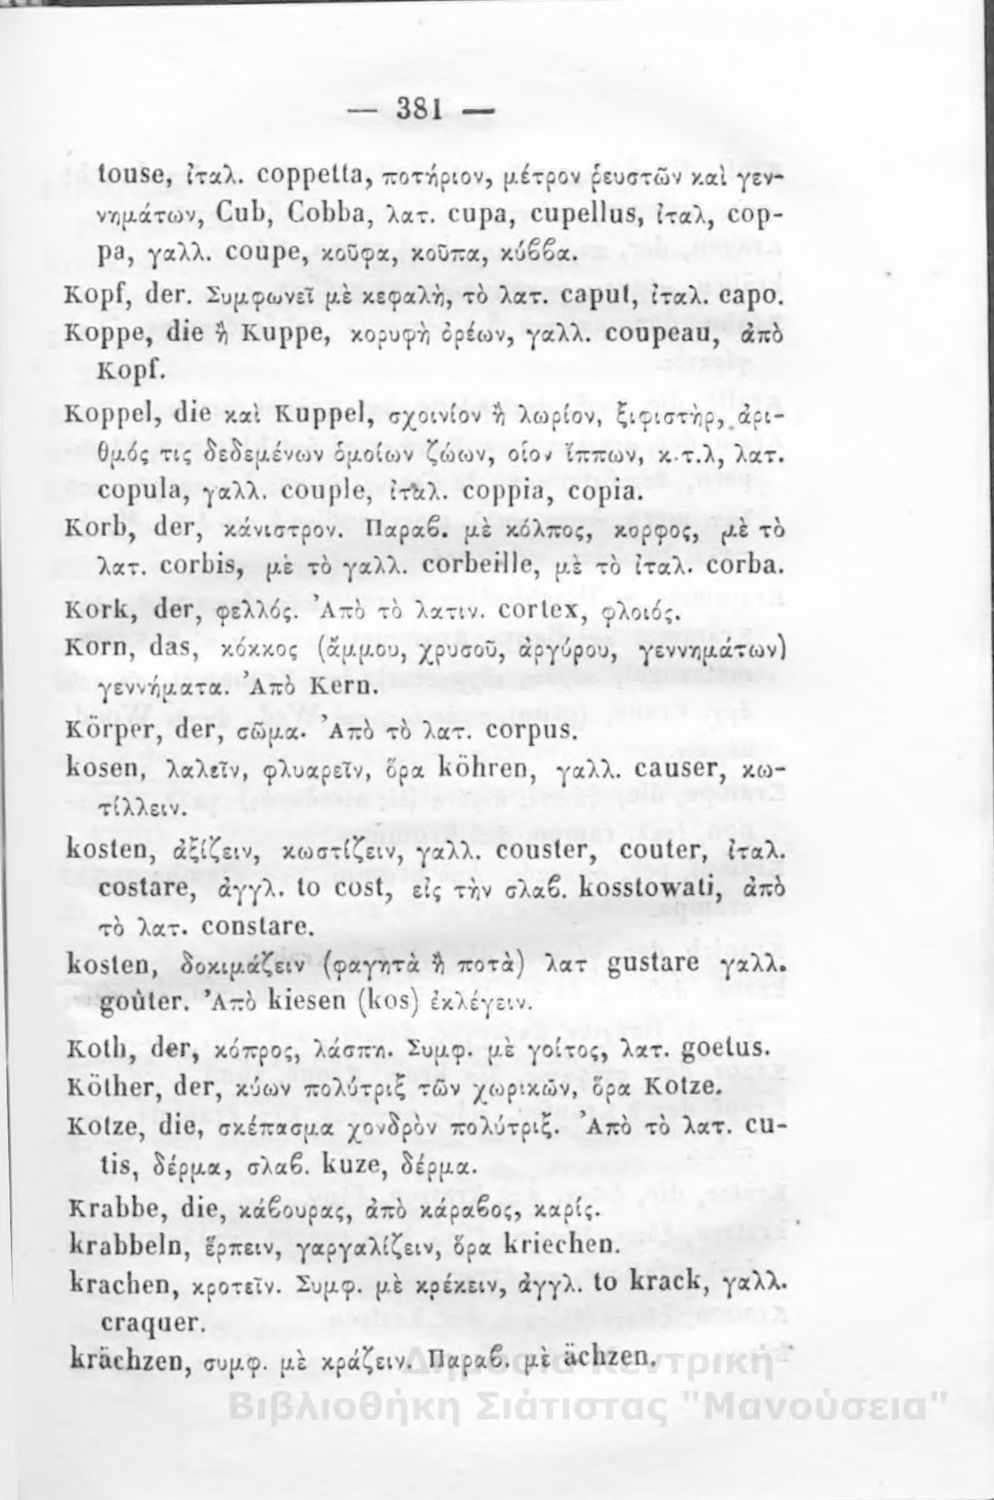 — 381 —
touse, ἰταλ. coppetta, ποτήριον, μέτρον ῥευστῶν καὶ γεν-
νημάτων, Cub, Cobba, λατ. cupa, cupellus, ἰταλ, cop-
pa, γαλλ. coupe, κοῦφα, κοῦπα, κύββα.
Kopf, der. Συμφωνεῖ μὲ κεφαλὴ, τὸ λατ. caput, ἰταλ. capo.
Koppe, die ἢ Kuppe, κορυφὴ ὀρέων, γαλλ. coupeau, ἀπὸ
Kopf.
Koppel, die καὶ Kuppel, σχοινίον ἢ λωρίον, ξιφιστὴρ, ἀρι-
θμός τις δεδεμένων ὁμοίων ζώων, οἷον ἵππων, κ.τ.λ, λατ.
copula, γαλλ. couple, ἰταλ. coppia, copia.
Korb, der, κάνιστρον. Παραβ. μὲ κόλπος, κορφος, μὲ τὸ
λατ. corbis, μὲ τὸ γαλλ. corbeille, μὲ τὸ ἰταλ. corba.
Kork, der, φελλός. Ἀπὸ τὸ λατιν. cortex, φλοιός.
Korn, das, κόκκος (ἄμμου, χρυσοῦ, ἀργύρου, γεννημάτων)
γεννήματα. Ἀπὸ Kern.
Körper, der, σῶμα. Ἀπὸ τὸ λατ. corpus.
kosen, λαλεῖν, φλυαρεῖν, ὅρα köhren, γαλλ. causer, κω-
τίλλειν.
kosten, ἀξίζειν, κωστίζειν, γαλλ. couster, couter, ἰταλ.
costare, ἀγγλ. to cost, εἰς τὴν σλαβ. kosstowati, ἀπὸ
τὸ λατ. constare.
kosten, δοκιμάζειν (φαγητὰ ἢ ποτὰ) λατ gustare γαλλ.
goûter. Ἀπὸ kiesen (kos) ἐκλέγειν.
Koth, der, κόπρος, λάσπη. Συμφ. μὲ γοῖτος, λατ. goetus.
Köther, der, κύων πολύτριξ τῶν χωρικῶν, ὅρα Kotze.
Kotze, die, σκέπασμα χονδρὸν πολύτριξ. Ἀπὸ τὸ λατ. cu-
tis, δέρμα, σλαβ. kuze, δέρμα.
Krabbe, die, κάβουρας, ἀπὸ κάραβος, καρίς.
krabbeln, ἕρπειν, γαργαλίζειν, ὅρα kriechen.
krachen, κροτεῖν. Συμφ. μὲ κρέκειν, ἀγγλ. to krack, γαλλ.
craquer.
krächzen, συμφ. μὲ κράζειν. Παραβ. μὲ ächzen.
Δημόσια Κεντρική
Βιβλιοθήκη Σιάτιστας "Μανούσεια"